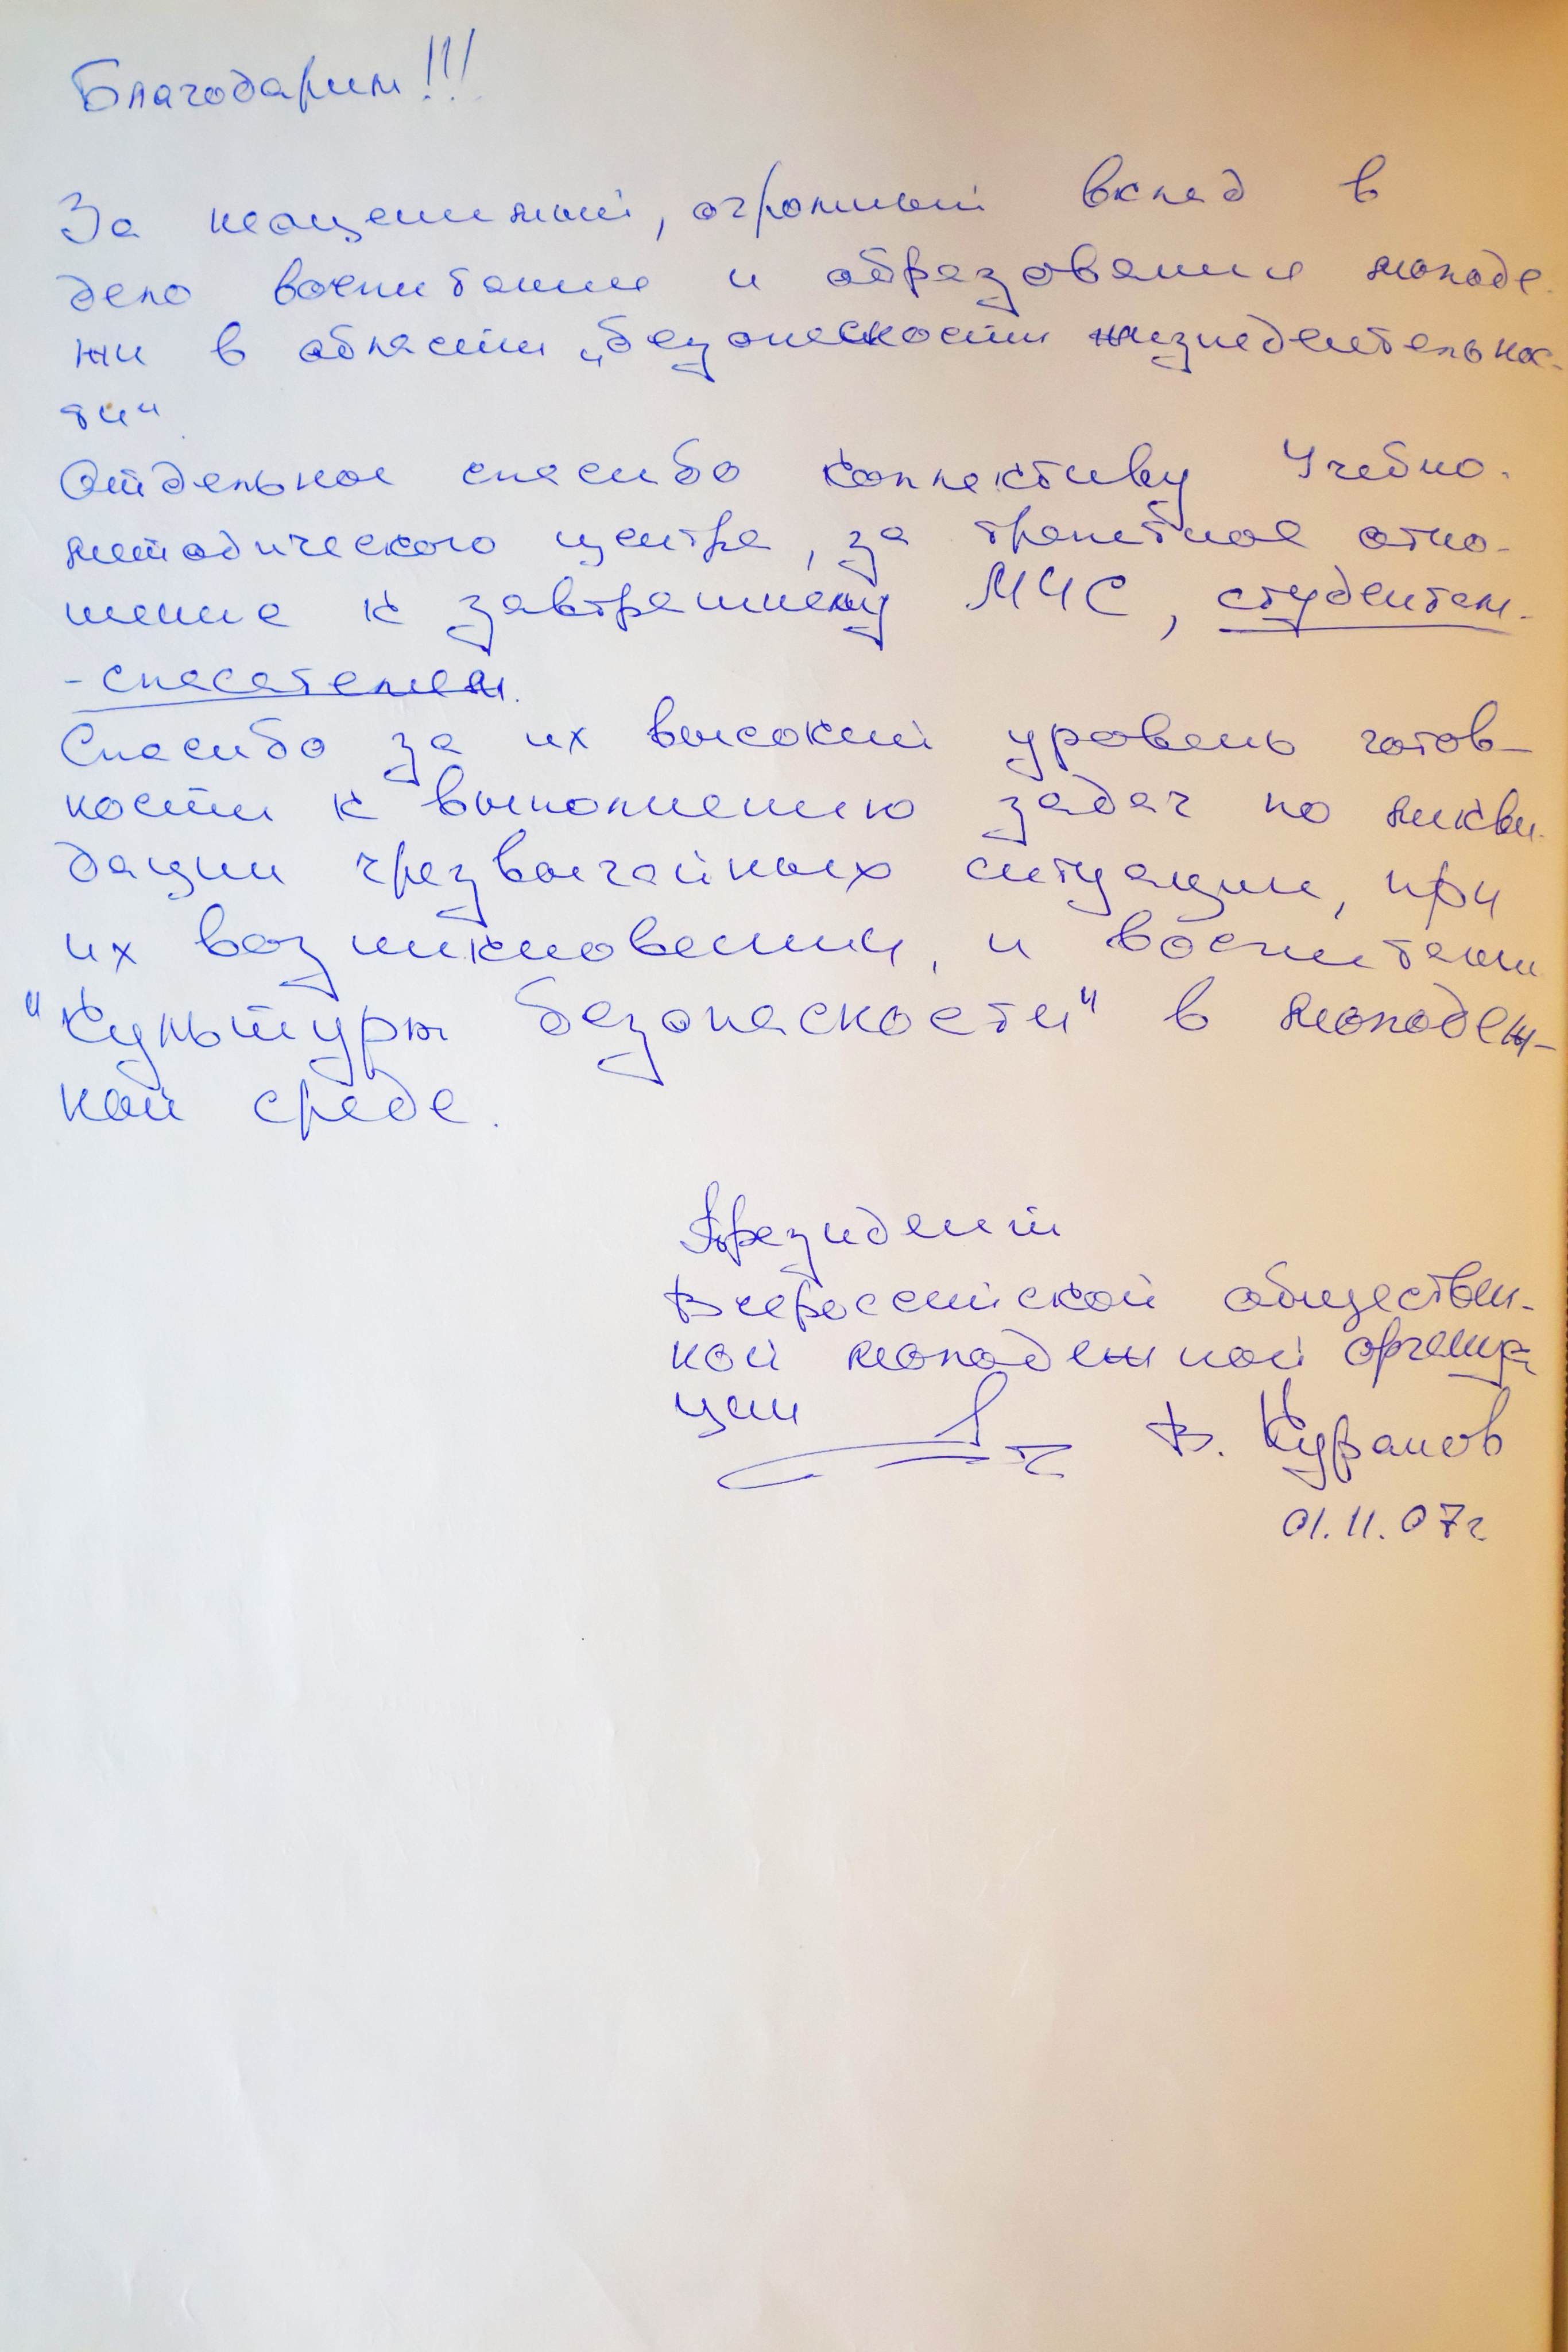 Благодарим!!!
За неоценимый, огромный вклад в
дело воспитание и образование молоде-
жи в области „безопасности жизнедеятельнос-
ти“
Отдельное спасибо коллективу Учебно-
методического центра, за трепетное отно-
шение к завтрашнему МЧС, студентам-
-спасателям.
Спасибо за их высокий уровень готов-
ности к выполнению задач по ликви-
дации чрезвычайных ситуации, при
их возникновении, и воспитании
"Культуры безопасности" в молодеж-
ной среде.
Президент
Всероссийской обществен-
ной молодежной организа-
ции
В. Куранов
01.11.07г